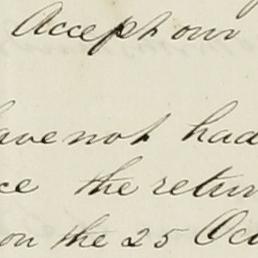 Accept our
have not had
ce the return
on the 25 Oct